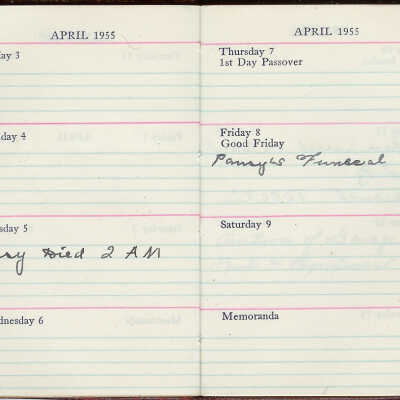 APRIL 1955
ay 3
day 4
sday 5
sy Died 2 AM
dnesday 6
APRIL 1955
Thursday 7
1st Day Passover
Friday 8
Good Friday
Pansy's Funeral
Saturday 9
Memoranda